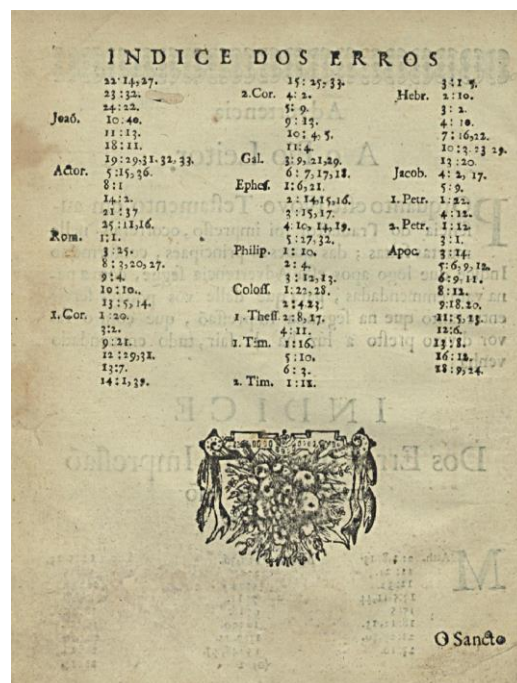 INDICE DOS ERROS
22:14,27.
23:32.
24:22.
Joaõ. 10:40.
11:13.
18:11.
19:29,31.32,33.
Actor. 5:15,36.
8:1
14:2.
21:37
25:11,16.
Rom. 1:1.
3:25.
8:3,20,27.
9:4.
10:10.
13:5,14.
1.Cor. 1:20.
3:2.
9:21.
12:29,31.
13:7.
14:1,39.
15:25,33.
2.Cor. 4:2.
5:9.
9:13.
10:4,5.
11:4.
Gal. 3:9,21,29.
6:7,17,18.
Ephes. 1:6,21.
2:14,15,16.
3:15,17.
4:10,14,19.
5:27,32.
Philip. 1:10.
2:4.
3:12,13.
Coloss. 1:22,28.
2:4 23.
1.Thess. 2:8,17.
4:11.
1.Tim. 1:16.
5:10.
6:3.
2.Tim. 1:12.
3:1 5.
Hebr. 2:10.
3:2.
4:10.
7:16,22.
10:2.23 29.
13:20.
Jacob. 4:2,17.
5:9.
1.Petr. 1:22.
4:12.
2.Petr. 1:12.
3:1.
Apoc. 3:14.
5:6,9,12.
6:9,11.
8:12.
9:18.20.
11:5,13.
12:6.
13:8.
16:12.
18:9,24.
O Sancto